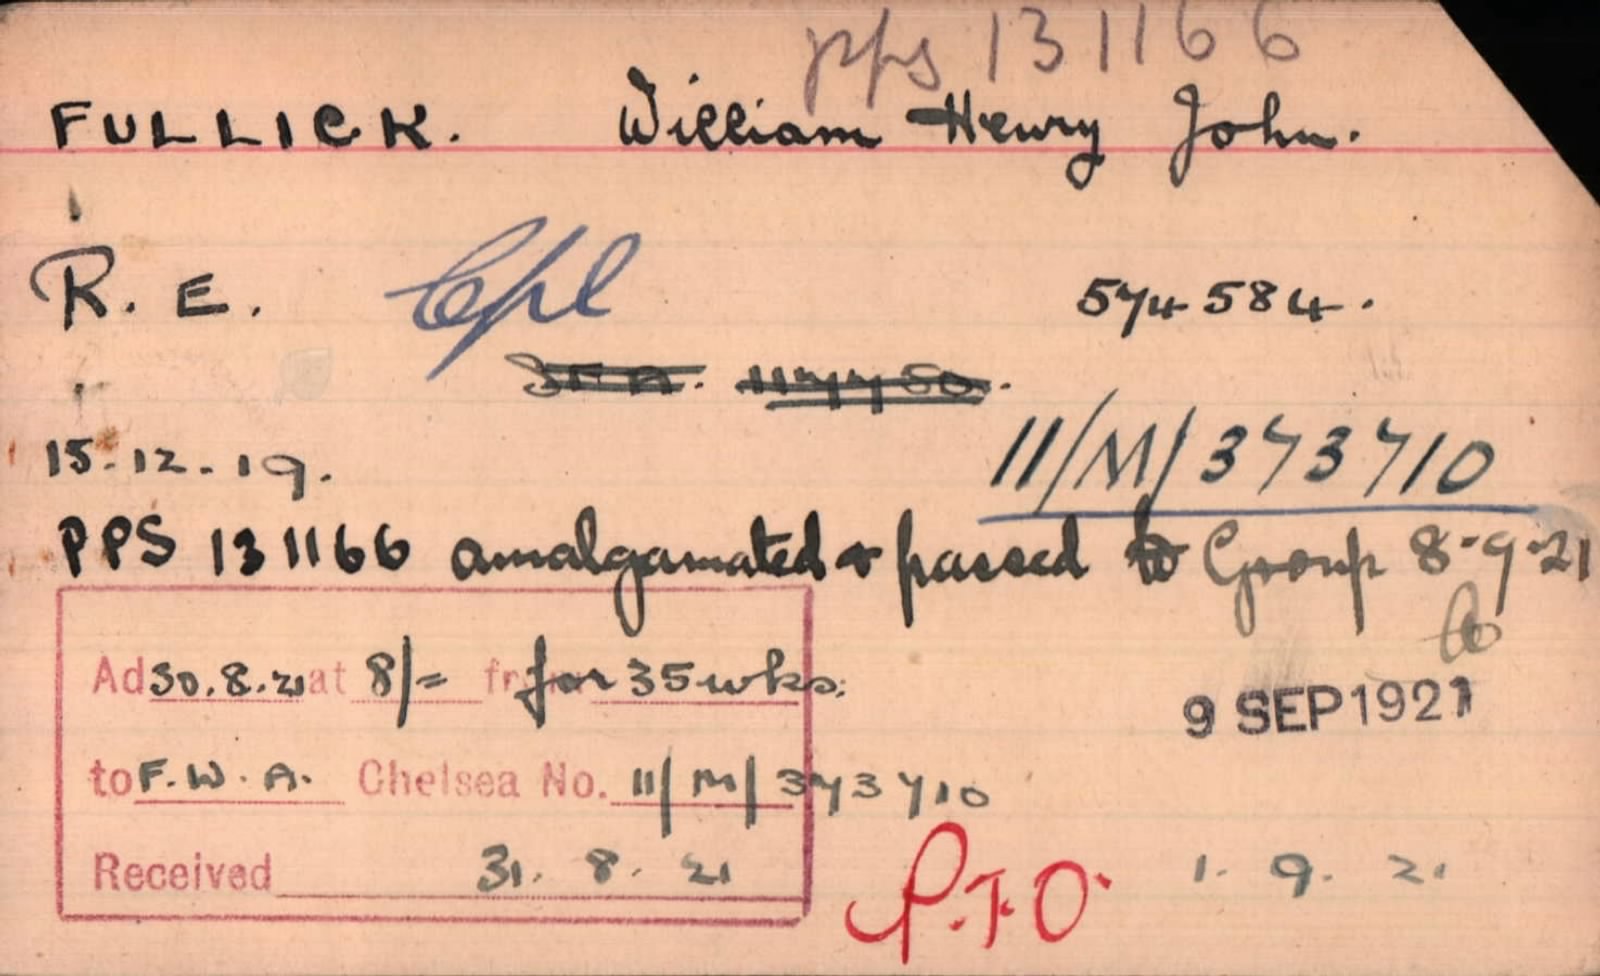 pps 131166
FULLICK. William Henry John.
R. E. Cpl 574584.
11/M/373710
15.12.19.
PPS 131166 amalgamated & passed to Group 8-9-21
Ad 30.8.21 at 8/= for 35 wks.
9 SEP 1921
to F.W.A. Chelsea No. 11/M/373710
Received 31. 8. 21
P.T.O. 1. 9. 21